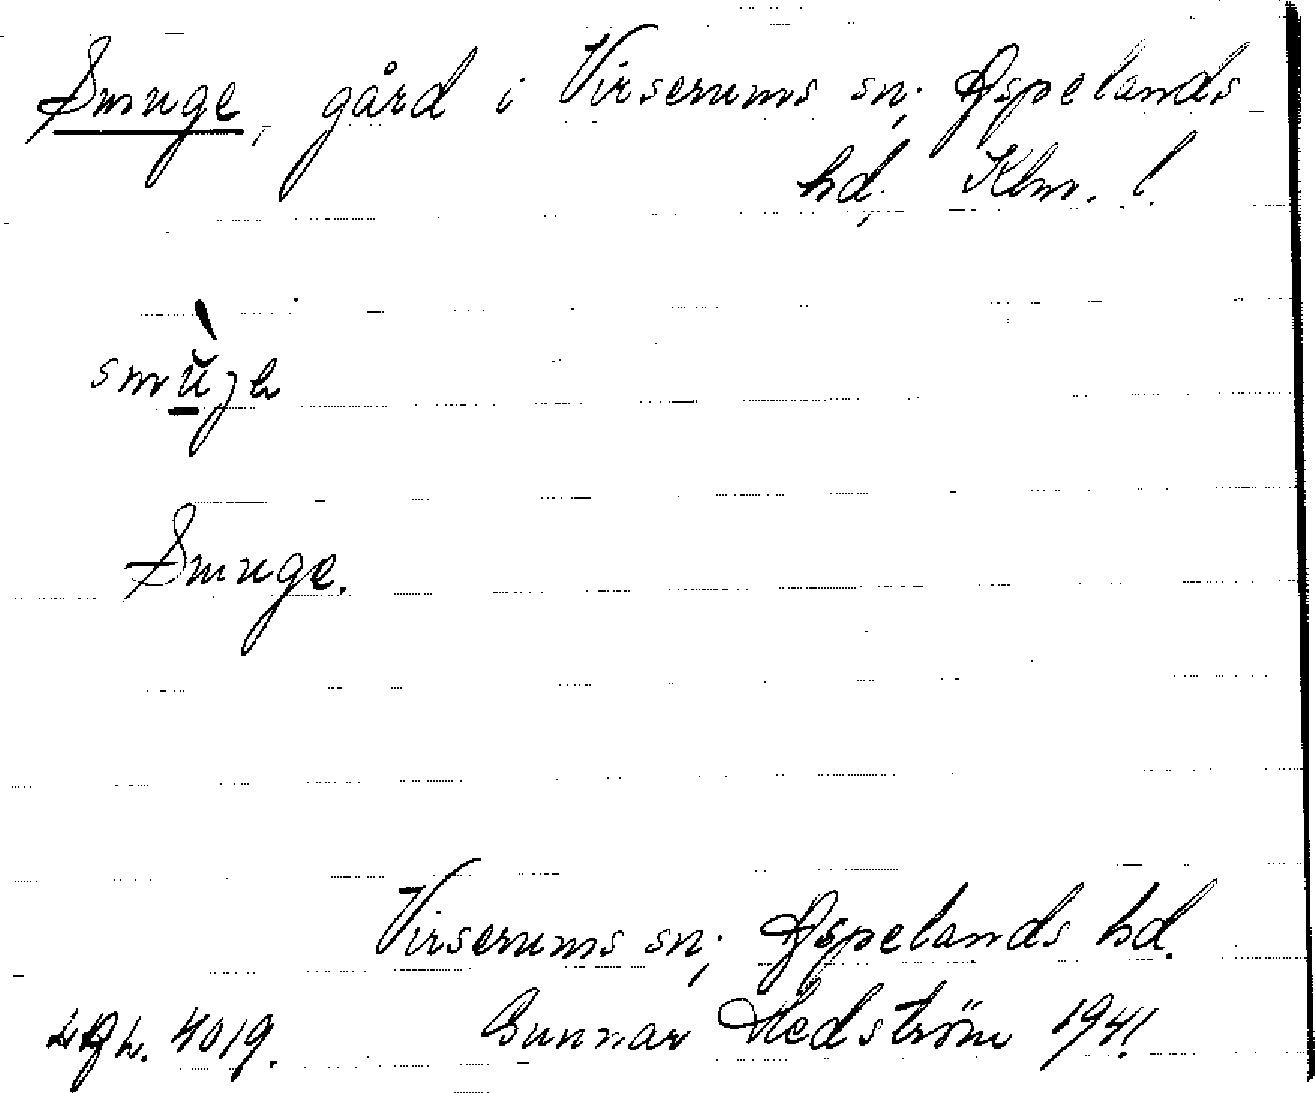 Smuge, gård i Virserums sn; Aspelands
hd, Klm. l.
Smuge.
Virserums sn; Aspelands hd.
4019. Gunnar Hedström 1941.